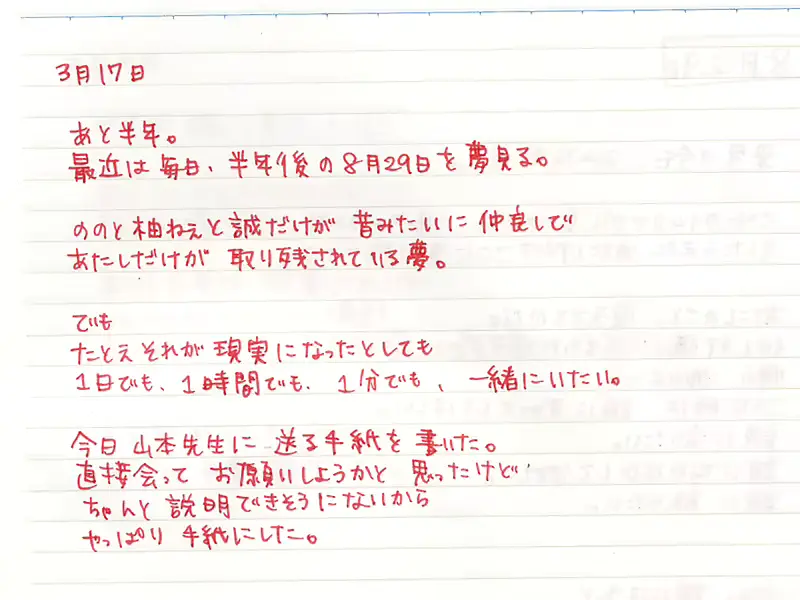 3月17日
あと半年。
最近は毎日、半年後の8月29日を夢見る。
ののと柚ねぇと誠だけが 昔みたいに仲良しで
あたしだけが 取り残されている夢。
でも
たとえそれが現実になったとしても
1日でも、1時間でも、1分でも、一緒にいたい。
今日 山本先生に 送る手紙を 書いた。
直接会って お願いしようかと 思ったけど
ちゃんと 説明できそうにないから
やっぱり 手紙にした。